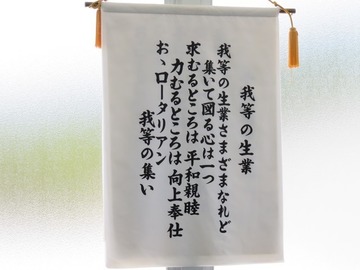 我等の生業
我等の生業さまざまなれど
集いて図る心は一つ
求むるところは 平和親睦
力むるところは 向上奉仕
おゝロータリアン
我等の集い